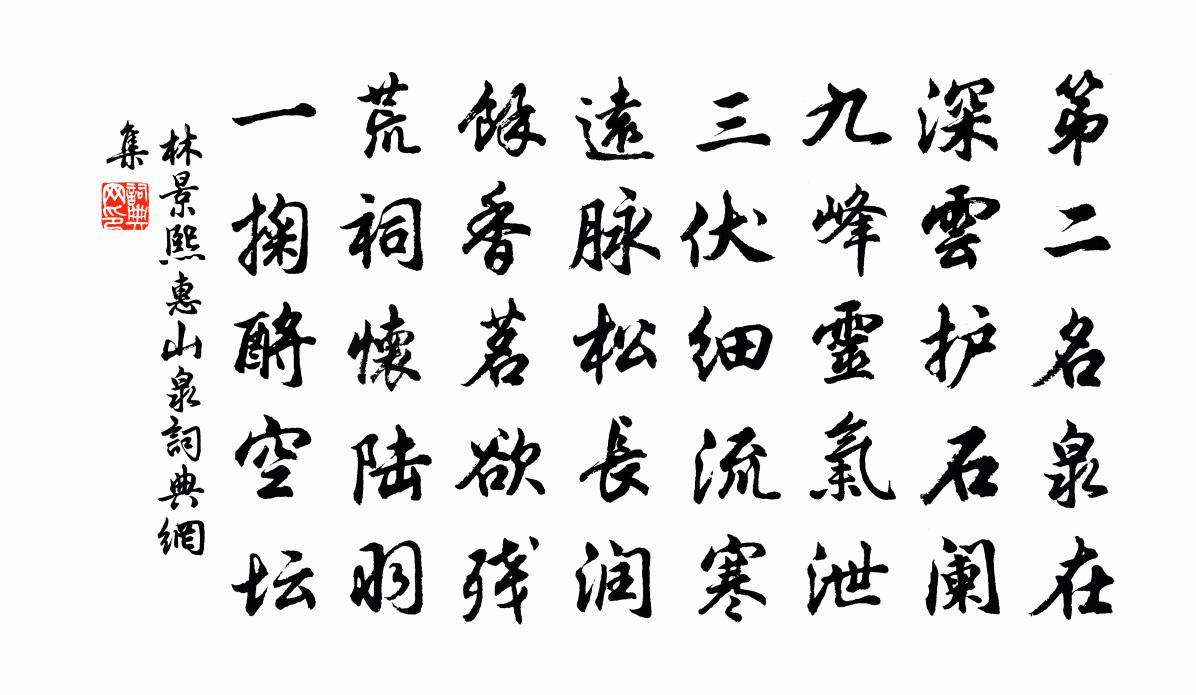 第二名泉在
深雲护石阑
九峰靈氣泄
三伏细流寒
遠脉松長润
餘香茗欲残
荒祠懷陆羽
一掬酹空坛
林景熙惠山泉詞典網
集
詞典
网印